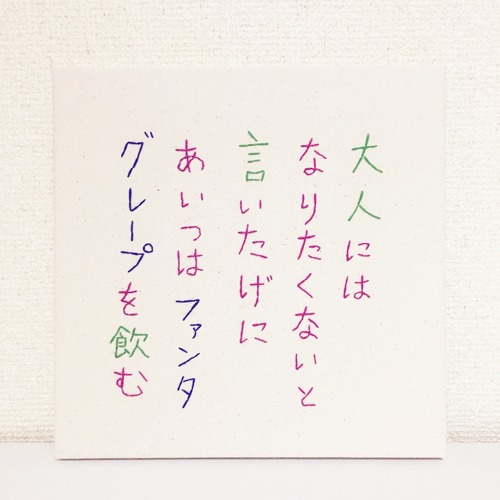 大人には
なりたくないと
言いたげに
あいつはファンタ
グレープを飲む